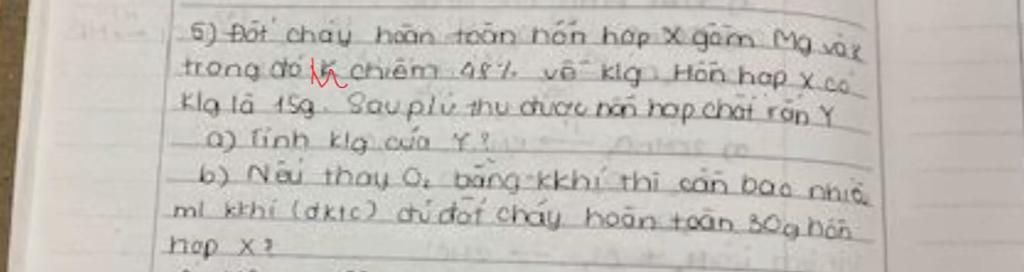 5) Đốt cháy hoàn toàn hỗn hợp X gồm Mg và
trong đó M chiếm 48% về klg. Hỗn hợp X có
klg là 15g. Sau p/ư thu được hỗn hợp chất rắn Y
a) Tính klg của Y?
b) Nếu thay O₂ bằng kkhí thì cần bao nhiê
ml kkhí (đktc) để đốt cháy hoàn toàn 30g hỗn
hợp X?